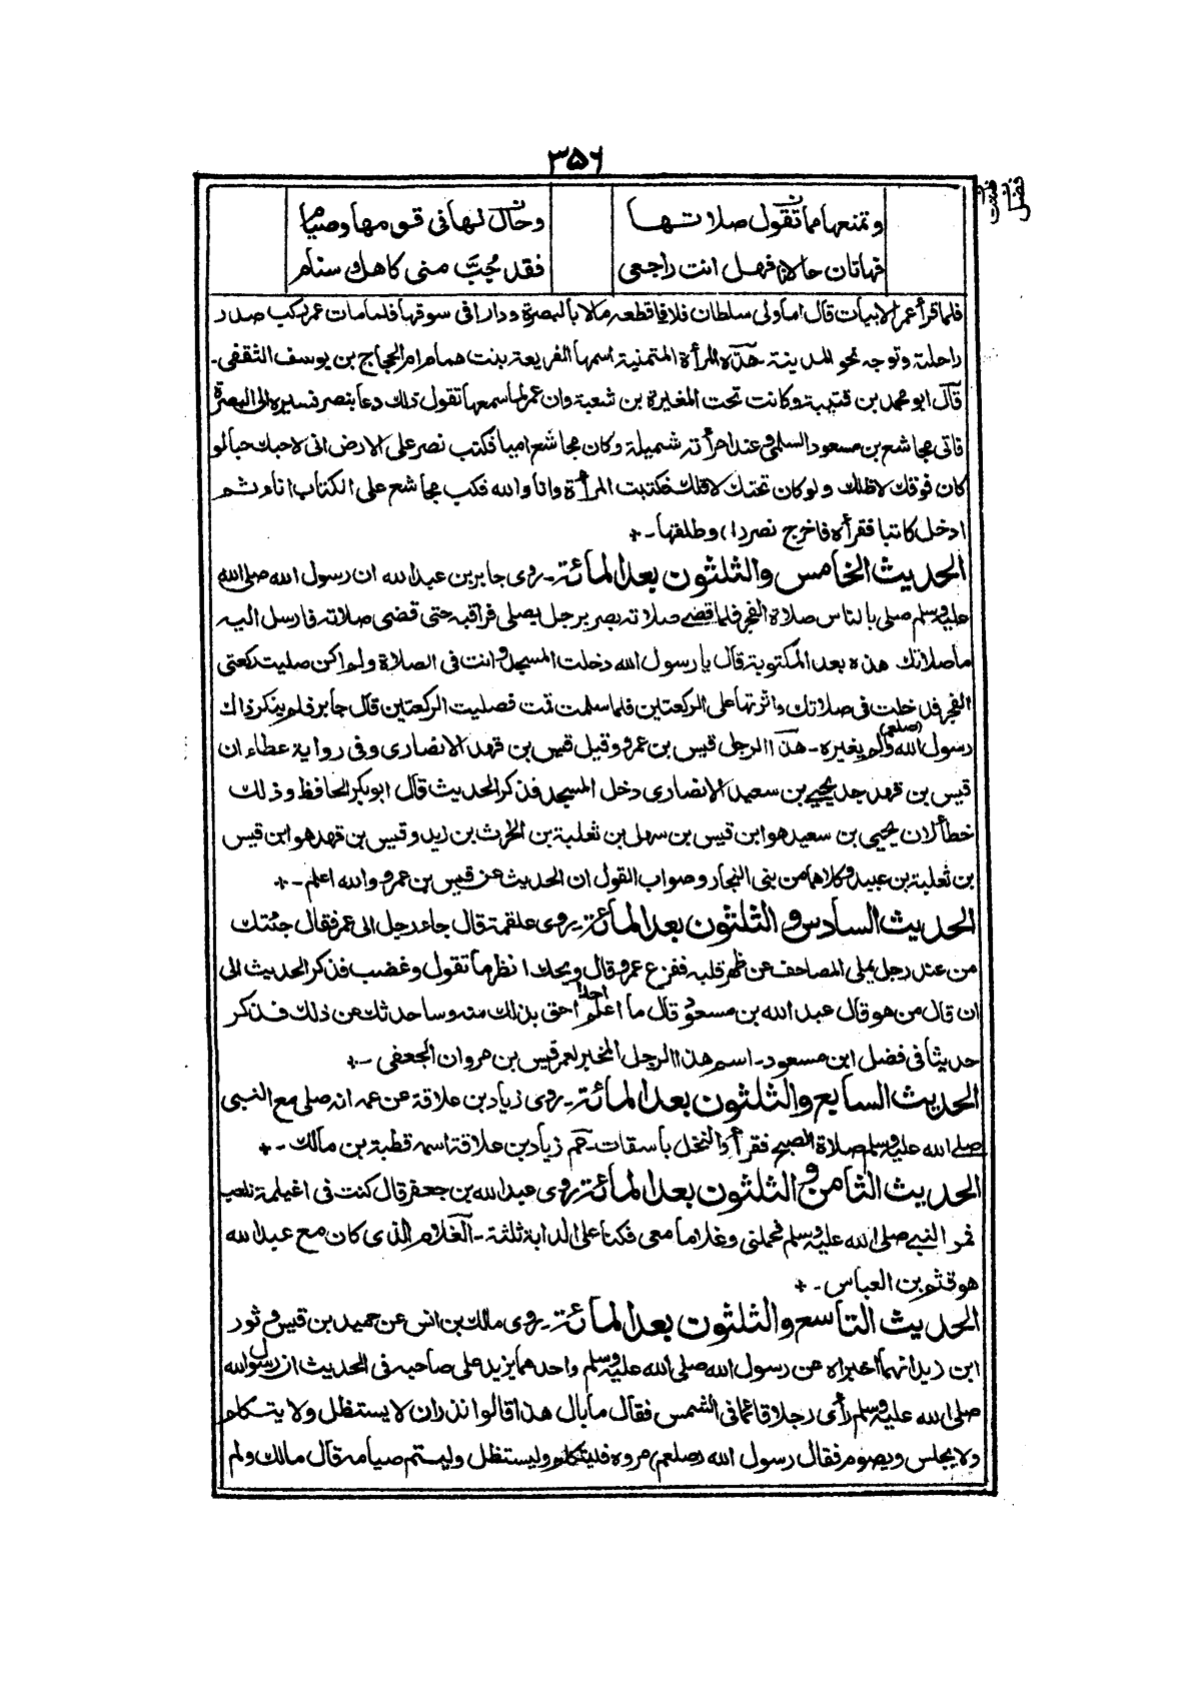 ۳۵۶
وتمنعها مما تقول صلاتها وحال لها في قومها وصيام
فهاتان حالانا فهل انت راجعي فقد جُبَّ مني كاهل سنام
فلما قرأ عمر الابيات قال اما ولي سلطان فلا فاقطعه مالا بالبصرة ودارا في سوقها فلما مات عمر ركب صدر
راحلته وتوجه نحو المدينة - هذه المرأة المتمنية اسمها الفريعة بنت همام ام الحجاج بن يوسف الثقفي -
قال ابو محمد بن قتيبة وكانت تحت المغيرة بن شعبة وان عمر لما سمعها تقول ذلك دعا بنصر فسيره الى البصرة
فاتى مجاشع بن مسعود السلمي وعنده امرأته شميلة وكان مجاشع اميا فكتب نصر على الارض اني لاحبك حبا لو
كان فوقك لاظلك ولو كان تحتك لاقلك فكتبت المرأة وانا والله فكب مجاشع على الكتاب اناء ثم
ادخل كاتبا فقرأه فاخرج نصر وطلقها - +
الحديث الخامس والثلثون بعد المائة - روى جابر بن عبد الله ان رسول الله صلى الله
عليه وسلم صلى بالناس صلاة الفجر فلما قضى صلاته بصر برجل يصلي فراقبه حتى قضى صلاته فارسل اليه
ما صلاتك هذه بعد المكتوبة قال يا رسول الله دخلت المسجد وانت في الصلاة ولم اكن صليت ركعتي
الفجر فدخلت في صلاتك واثرتها على الركعتين فلما سلمت قمت فصليت الركعتين قال جابر فلم ينكر ذاك
رسول الله (صلعم) ولم يغيره - هذا الرجل قيس بن عمرو وقيل قيس بن قهد الانصاري وفي رواية عطاء ان
قيس بن قهد جد يحيى بن سعيد الانصاري دخل المسجد فذكر الحديث قال ابو بكر الحافظ وذلك
خطأ لان يحيى بن سعيد هو ابن قيس بن سهل بن ثعلبة بن الحرث بن زيد وقيس بن قهد هو ابن قيس
بن ثعلبة بن عبيد وكلاهما من بني النجار وصواب القول ان الحديث عن قيس بن عمرو والله اعلم - +
الحديث السادس والثلثون بعد المائة - روى علقمة قال جاء رجل الى عمر فقال جئتك
من عند رجل يملي المصاحف عن ظهر قلبه ففزع عمر وقال ويحك انظر ما تقول وغضب فذكر الحديث الى
ان قال من هو قال عبد الله بن مسعود قال ما اعلم احدا احق بذلك منه وساحدثك عن ذلك فذكر
حديثا في فضل ابن مسعود - اسم هذا الرجل المخبر لعمر قيس بن مروان الجعفي - +
الحديث السابع والثلثون بعد المائة - روى زياد بن علاقة عن عمه انه صلى مع النبي
صلى الله عليه وسلم صلاة الصبح فقرأ والنخل باسقات - عم زياد بن علاقة اسمه قطبة بن مالك - +
الحديث الثامن والثلثون بعد المائة روى عبد الله بن جعفر قال كنت في اغيلمة نلعب
فمر النبي صلى الله عليه وسلم فحملني وغلاما معي فكنا على الدابة ثلثة - الغلام الذي كان مع عبد الله
هو قثم بن العباس - +
الحديث التاسع والثلثون بعد المائة - روى مالك بن انس عن حميد بن قيس وثور
ابن زيد انهما اخبراه عن رسول الله صلى الله عليه وسلم واحدهما يزيد على صاحبه في الحديث ان رسول الله
صلى الله عليه وسلم رأى رجلا قائما في الشمس فقال ما بال هذا قالوا نذر ان لا يستظل ولا يتكلم
ولا يجلس ويصوم فقال رسول الله (صلعم) مروه فليتكلم وليستظل وليتم صيامه قال مالك ولم